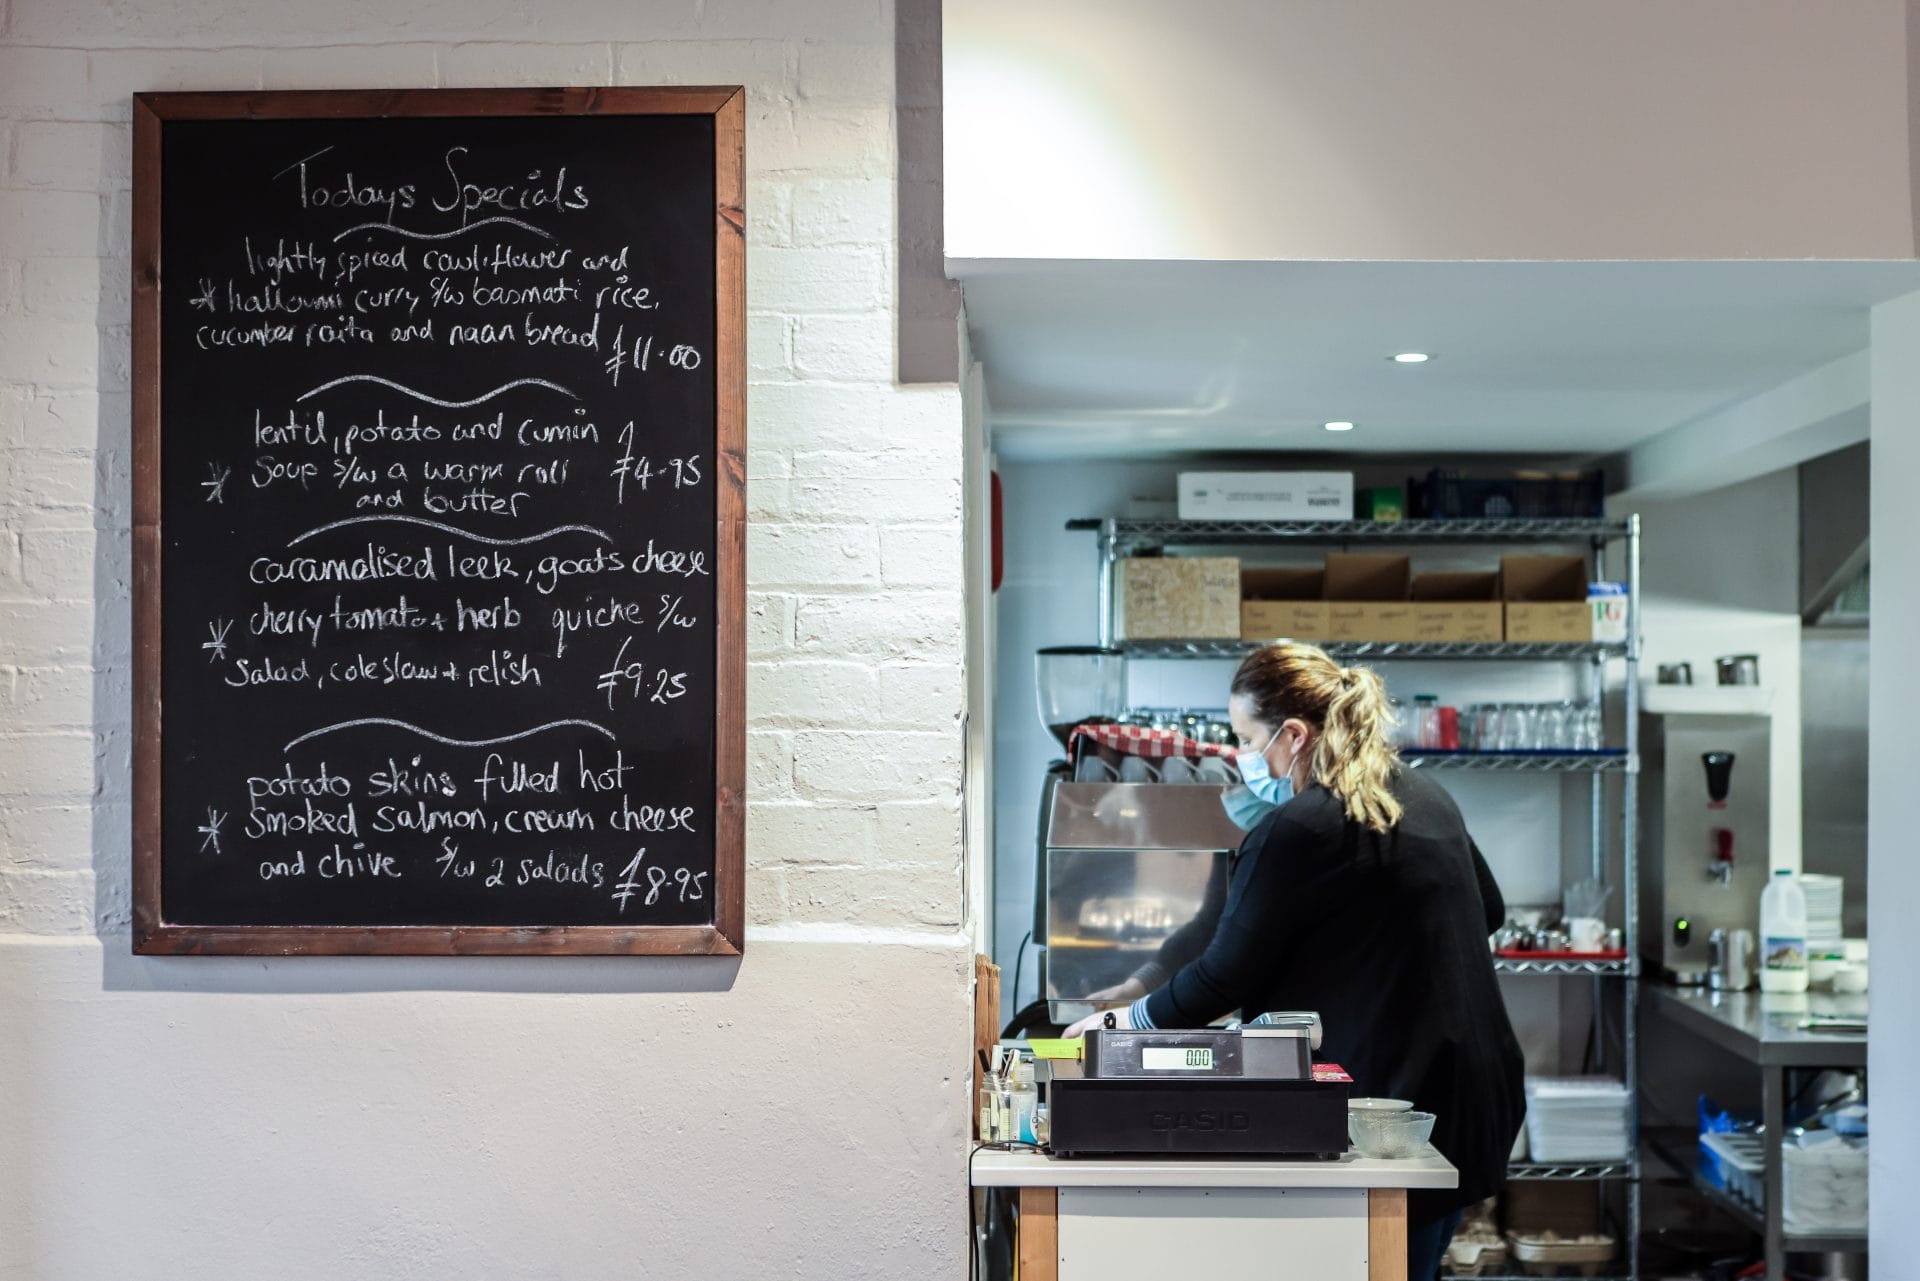 Todays Specials
lightly spiced cauliflower and
* halloumi curry s/w basmati rice,
cucumber raita and naan bread £11.00
lentil, potato and cumin
* Soup s/w a warm roll £4.95
and butter
caramalised leek, goats cheese
cherry tomato + herb quiche s/w
*
Salad, coleslaw + relish £9.25
potato skins filled hot
* Smoked Salmon, cream cheese
and chive s/w 2 salads £8.95
PG
CASIO
0.00
CASIO